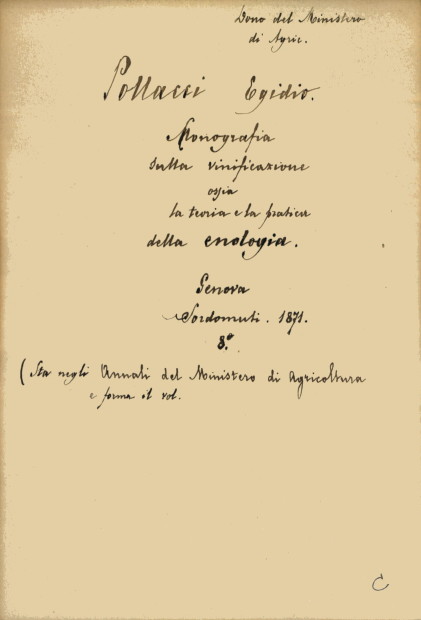 Dono del Ministero
di Agric.
Pollacci Egidio.
Monografia
sulla vinificazione
ossia
la teoria e la pratica
della enologia.
Genova
Sordomuti. 1871.
8.°
(Sta negli Annali del Ministero di Agricoltura
e forma il vol.
C